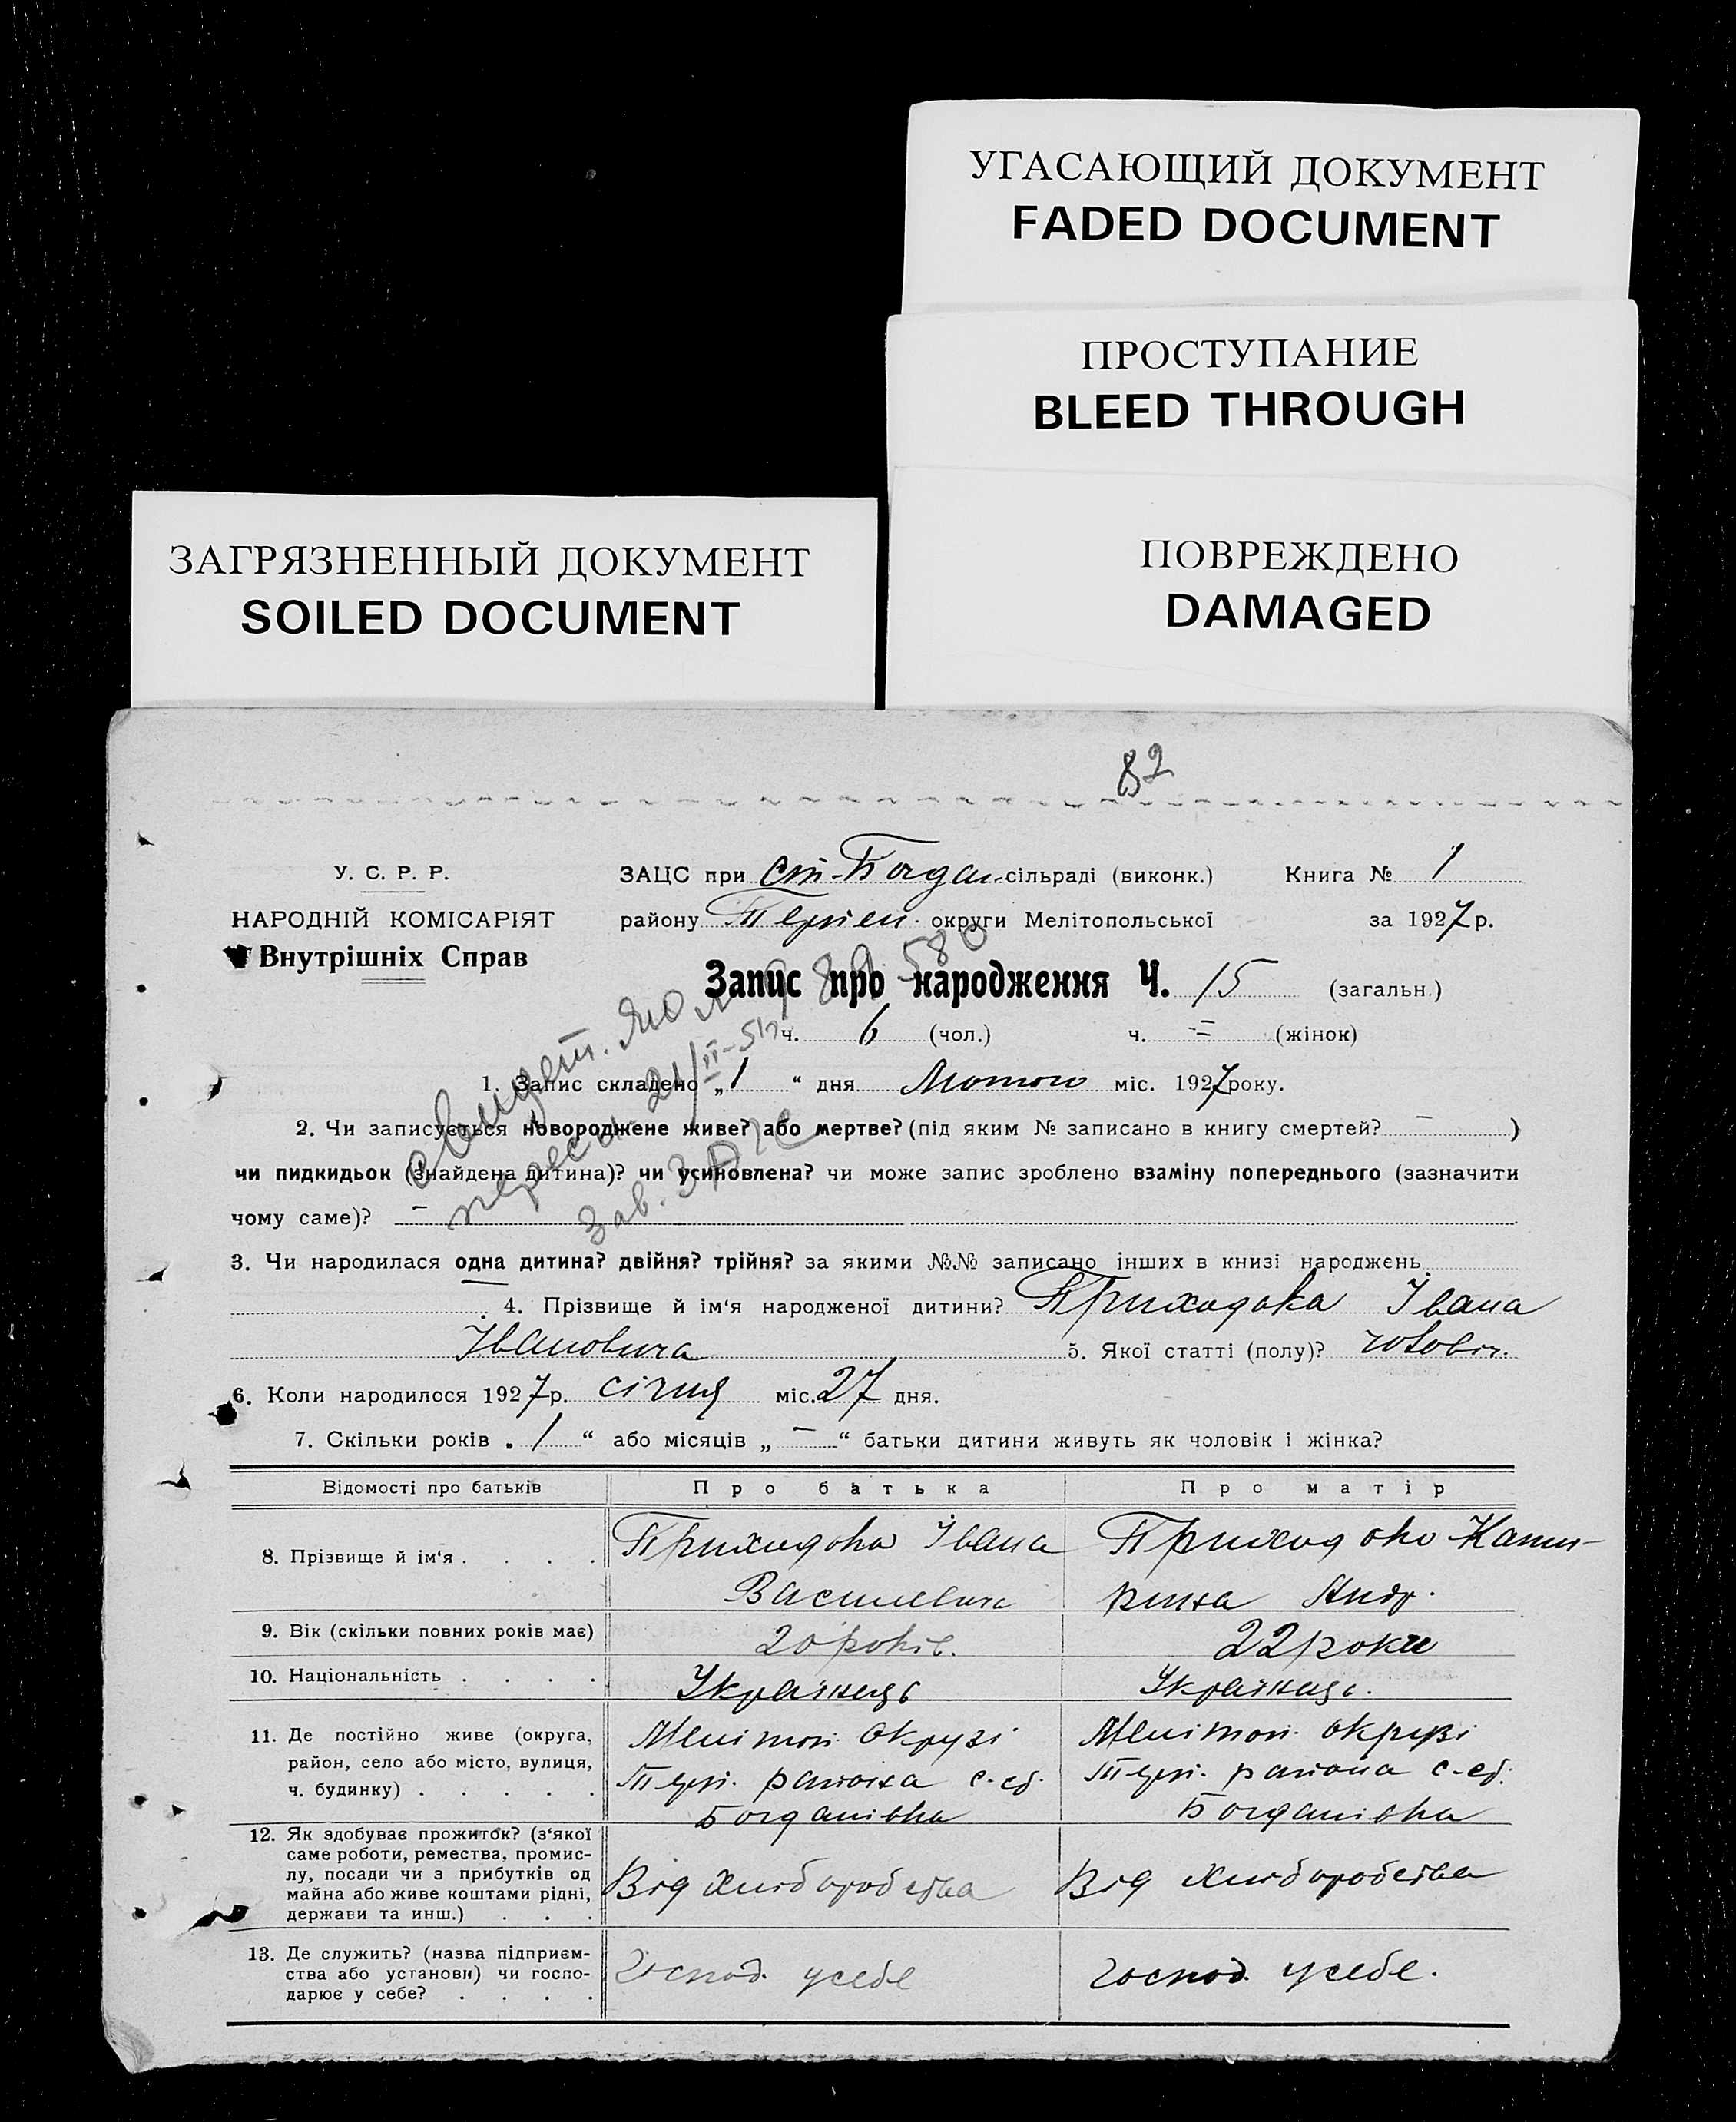 УГАСАЮЩИЙ ДОКУМЕНТ
FADED DOCUMENT
ПРОСТУПАНИЕ
BLEED THROUGH
ЗАГРЯЗНЕННЫЙ ДОКУМЕНТ
SOILED DOCUMENT
ПОВРЕЖДЕНО
DAMAGED
82
У. С. Р. Р.
НАРОДНІЙ КОМІСАРІЯТ
Внутрішніх Справ
ЗАЦС при ст-Богдан сільраді (виконк.) Книга № 1
району Терпен. округи Мелітопольської за 1927 р.
Запис про народження Ч. 15 (загальн.)
ч. 6 (чол.) ч. = (жінок)
1. Запис складено „1“ дня Лютого міс. 1927 року.
2. Чи записується новороджене живе? або мертве? (під яким № записано в книгу смертей? — )
чи пидкидьок (знайдена дитина)? чи усиновлена? чи може запис зроблено взаміну попереднього (зазначити
чому саме)? —
свидет.
580
21/II-51
Зав. ЗАГС
3. Чи народилася одна дитина? двійня? трійня? за якими №№ записано інших в книзі народжень
4. Прізвище й ім‘я народженої дитини? Приходька Івана
Івановича 5. Якої статті (полу)? чоловіч.
6. Коли народилося 1927 р. січня міс. 27 дня.
7. Скільки років „ 1 “ або місяців „ — “ батьки дитини живуть як чоловік і жінка?
Відомості про батьків Про батька Про матір
8. Прізвище й ім‘я . . . . Приходько Івана Приходько Кати-
Василевич рина Андр.
9. Вік (скільки повних років має) 20 років. 22 роки
10. Національність . . . . Українець Українць.
11. Де постійно живе (округа, Мелітоп. окрузі Мелітоп. окрузі
район, село або місто, вулиця, Терп. района с-ст. Терп. района с-ст.
ч. будинку) . . . . . Богданівка Богданівка
12. Як здобуває прожиток? (з‘якої
саме роботи, ремества, промис-
лу, посади чи з прибутків од
майна або живе коштами рідні,
держави та инш.) . . . Від хліборобства Від хліборобства
13. Де служить? (назва підприєм-
ства або установи) чи госпо-
дарює у себе? . . . . Господ. у себе господ. у себе.